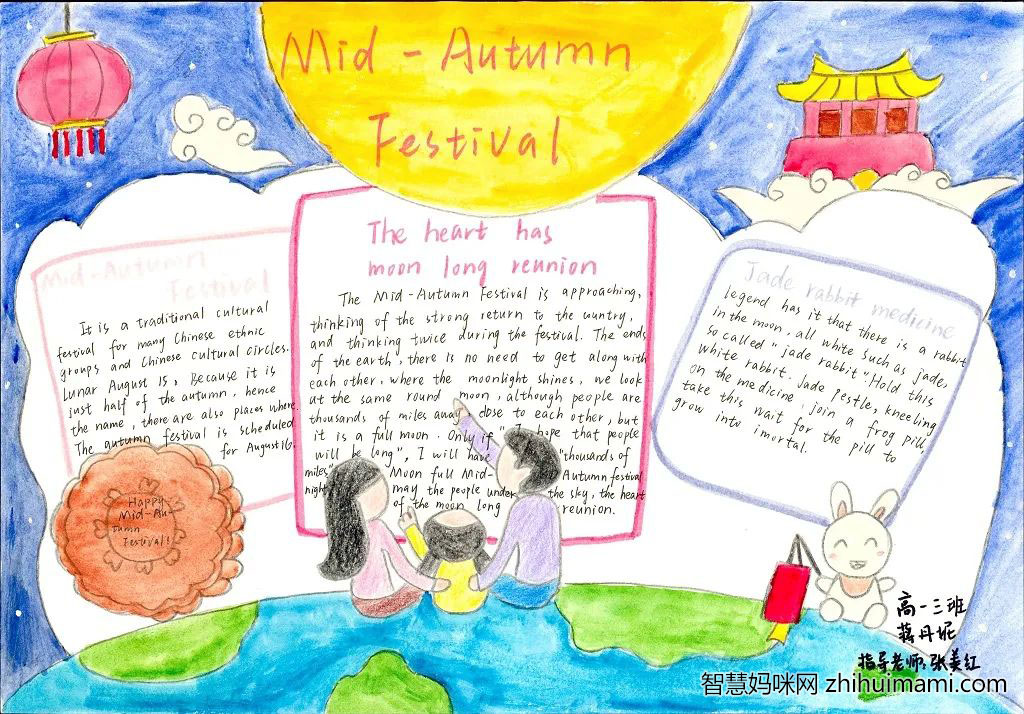 Mid - Autumn
Festival
Mid-Autumn
Festival
It is a traditional cultural
festival for many Chinese ethnic
groups and Chinese cultural circles.
Lunar August 15, Because it is
just half of the autumn, hence
the name, there are also places where
The autumn festival is scheduled
for August 16.
Happy
Mid-Au
tumn
Festival!
The heart has
moon long reunion
The Mid-Autumn Festival is approaching,
thinking of the strong return to the wuntry,
and thinking twice during the festival. The ends
of the earth, there is no need to get along with
each other, where the moonlight shines, we look
at the same round moon, although people are
thousands of miles away close to each other, but
it is a full moon. Only if "I hope that people
will be long", I will have "thousands of
miles" Moon full Mid- Autumn festival
night may the people under the sky, the heart
of the moon long reunion.
Jade rabbit medicine
legend has it that there is a rabbit
in the moon, all white such as jade,
so called "jade rabbit" Hold this
white rabbit. Jade pestle, kneeling
on the medicine, join a frog pill,
take this wait for the pill to
grow into imortal.
高一三班
蒋丹妮
指导老师:张美红
智慧妈咪网 zhihuimami.com